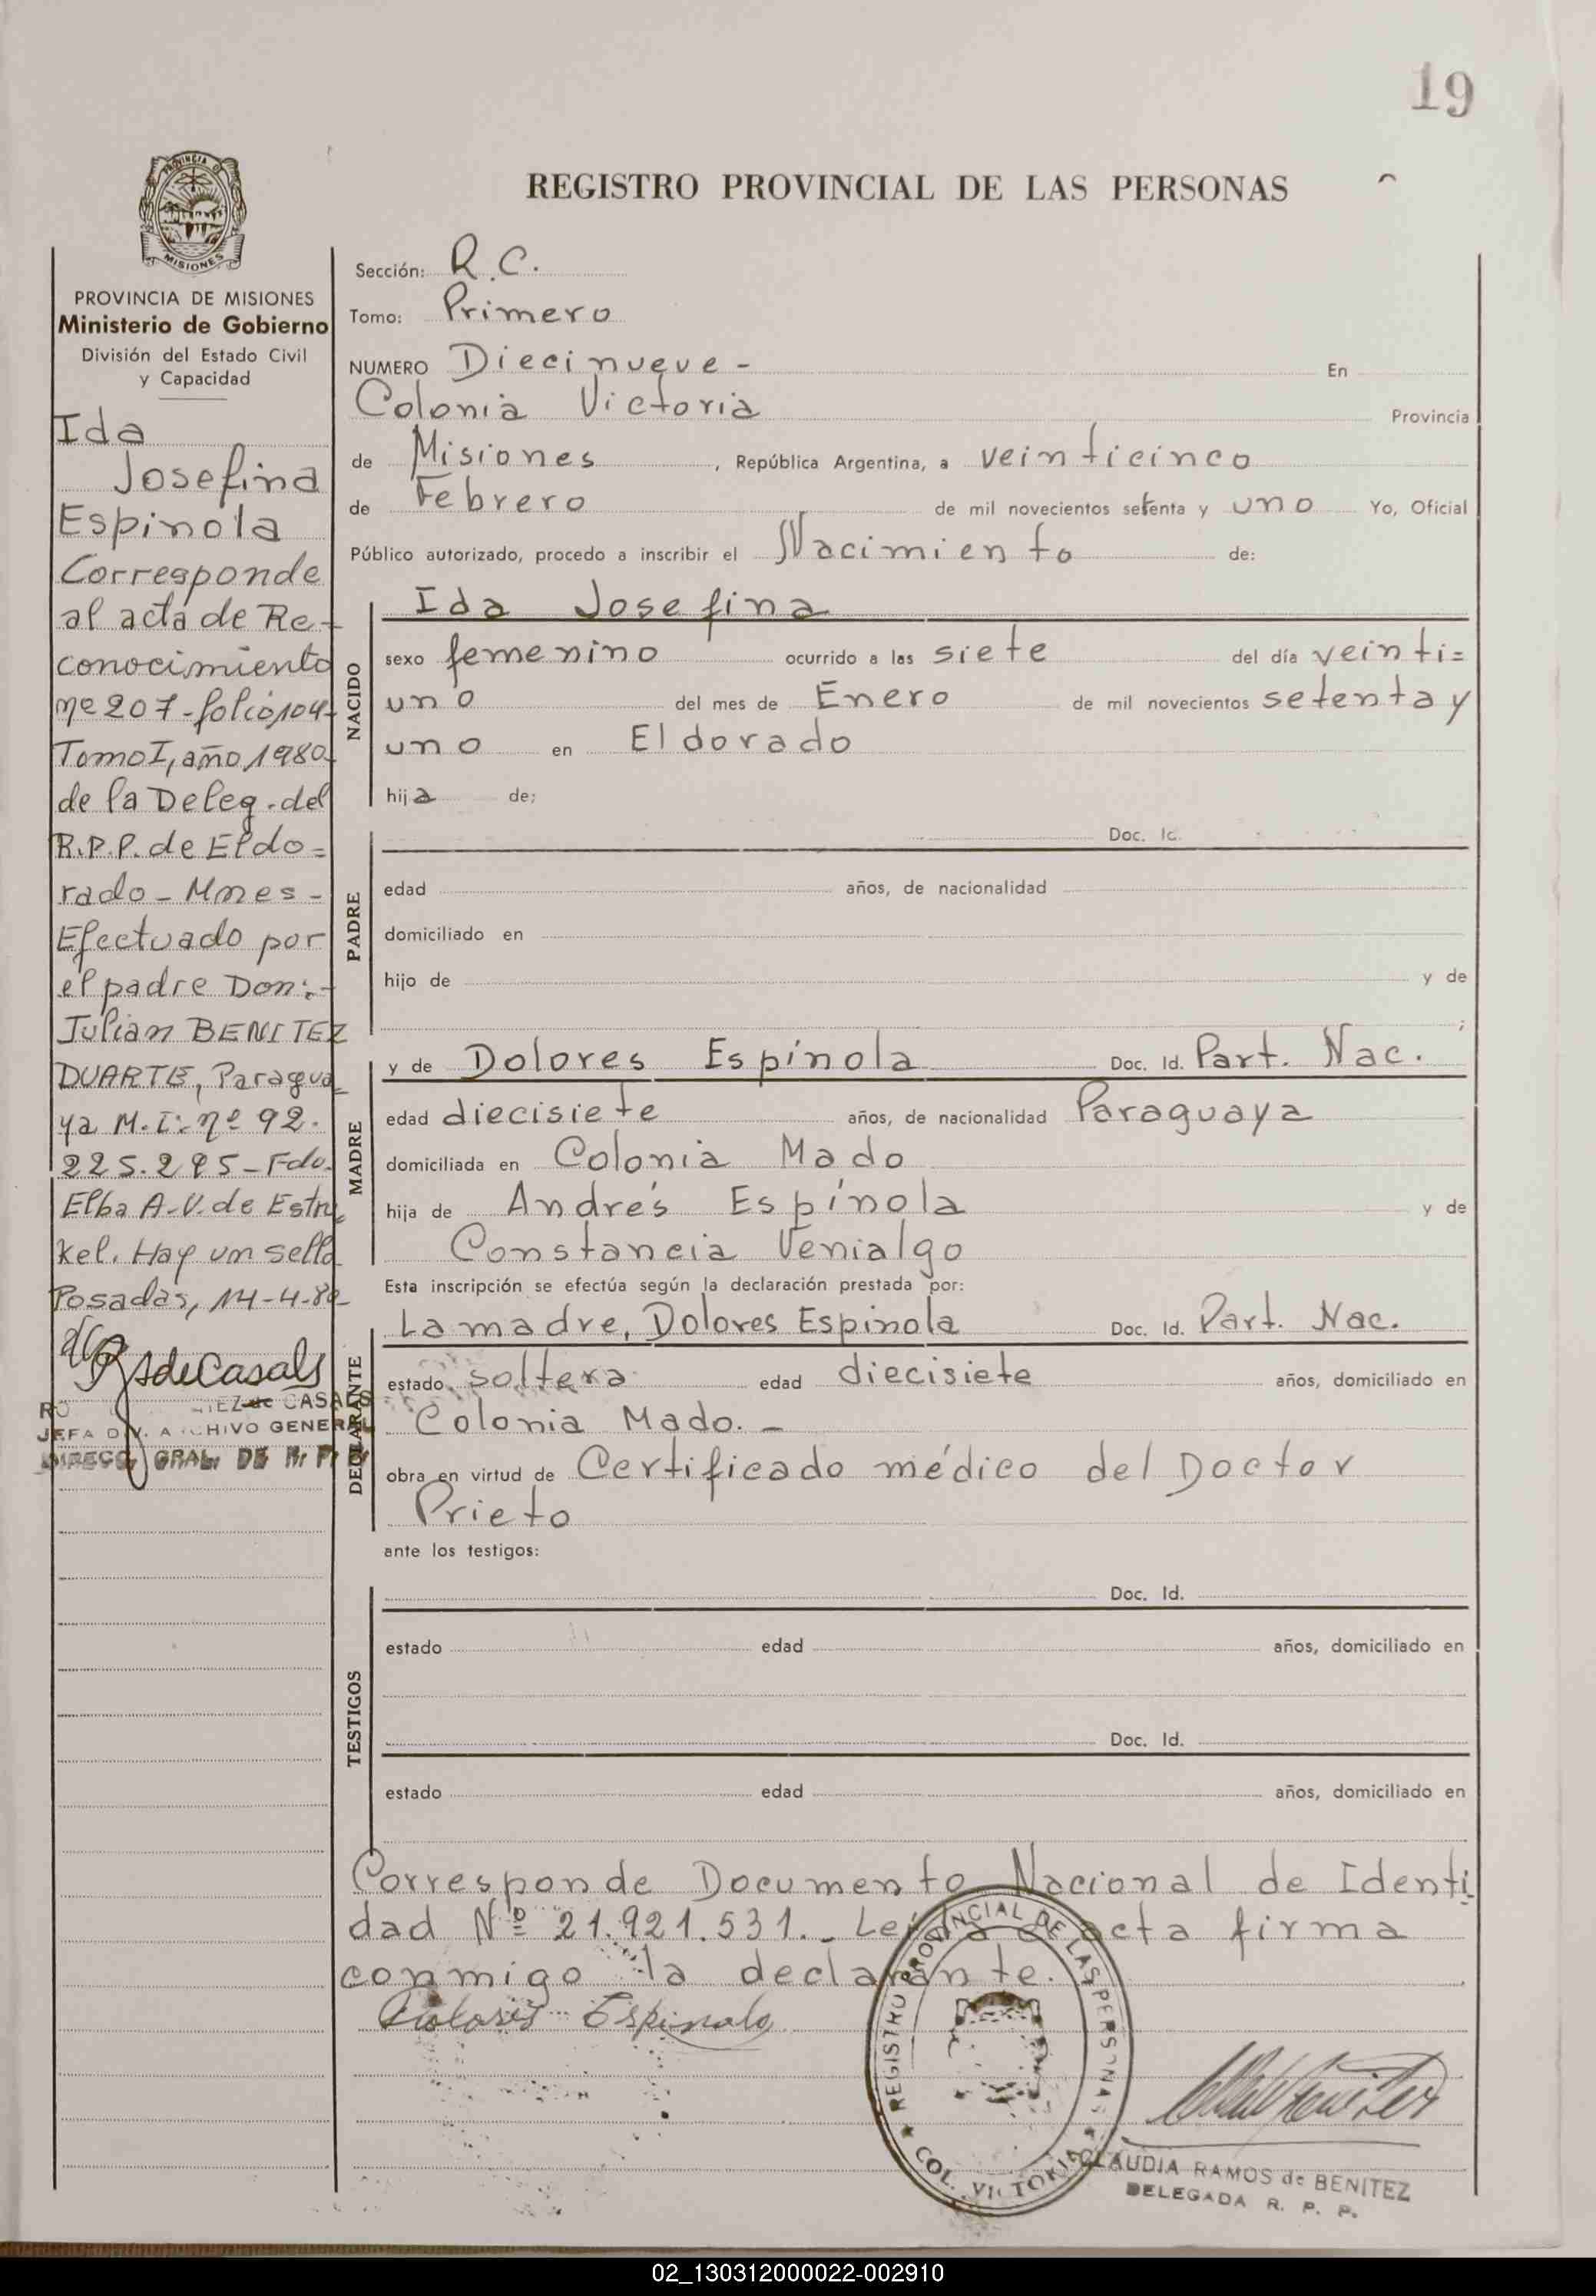 19
REGISTRO PROVINCIAL DE LAS PERSONAS
PROVINCIA DE
MISIONES
PROVINCIA DE MISIONES
Ministerio de Gobierno
División del Estado Civil
y Capacidad
Ida
Josefina
Espinola
Corresponde
al acta de Re-
conocimiento
nº 207-folio 104-
Tomo I, año 1980
de la Deleg. del
R.P.P. de Eldo=
rado - Mnes -
Efectuado por
el padre Don:-
Julian BENITEZ
DUARTE, Paragua
ya M.I: nº 92.
225.295 - Fdo.
Elba A.V. de Estru
kel. Hay un sello
Posadas, 14-4-80-
RdeCasals
EZ de CASALS
JEFA DIV. ARCHIVO GENERAL
DIRECC. GRAL. DE R. P. P.
Sección: R.C.
Tomo: Primero
NUMERO Diecinueve - En
Colonia Victoria Provincia
de Misiones, República Argentina, a veinticinco
de Febrero de mil novecientos setenta y uno Yo, Oficial
Público autorizado, procedo a inscribir el Nacimiento de:
NACIDO
Ida Josefina
sexo femenino ocurrido a las siete del día veinti=
uno del mes de Enero de mil novecientos setenta y
uno en Eldorado
hija de:
PADRE
Doc. Id.
edad años, de nacionalidad
domiciliado en
hijo de y de
;
MADRE
y de Dolores Espínola Doc. Id. Part. Nac.
edad diecisiete años, de nacionalidad Paraguaya
domiciliada en Colonia Mado
hija de Andrés Espínola y de
Constancia Venialgo
Esta inscripción se efectúa según la declaración prestada por:
DECLARANTE
La madre, Dolores Espinola Doc. Id. Part. Nac.
estado soltera edad diecisiete años, domiciliado en
Colonia Mado. -
obra en virtud de Certificado médico del Doctor
Prieto
ante los testigos:
TESTIGOS
Doc. Id.
estado edad años, domiciliado en
Doc. Id.
estado edad años, domiciliado en
Corresponde Documento Nacional de Identi
dad Nº 21.921.531.- Leída el acta firma
conmigo la declarante.
Dolores Espinola
REGISTRO PROVINCIAL DE LAS PERSONAS
COL. VICTORIA
CLAUDIA RAMOS de BENITEZ
DELEGADA R. P. P.
02_130312000022-002910